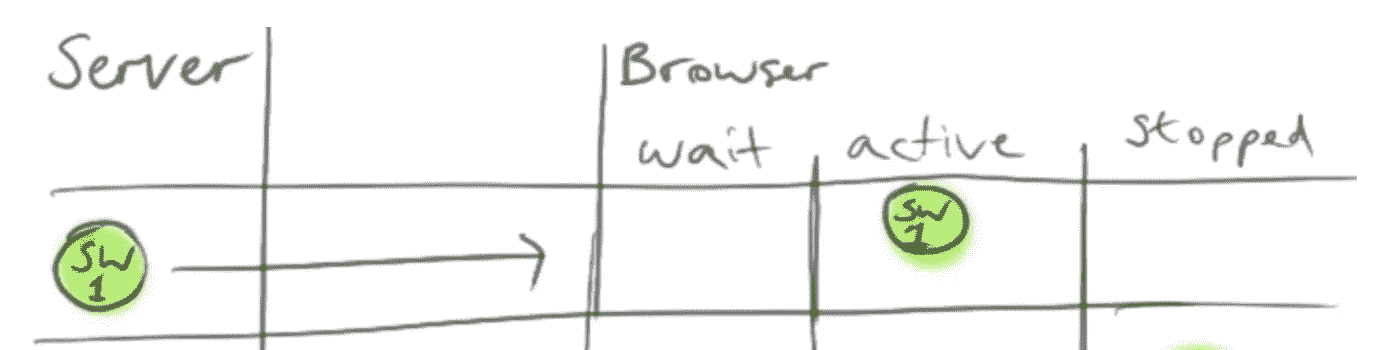 Server
Browser
wait
active
stopped
SW
1
SW
1